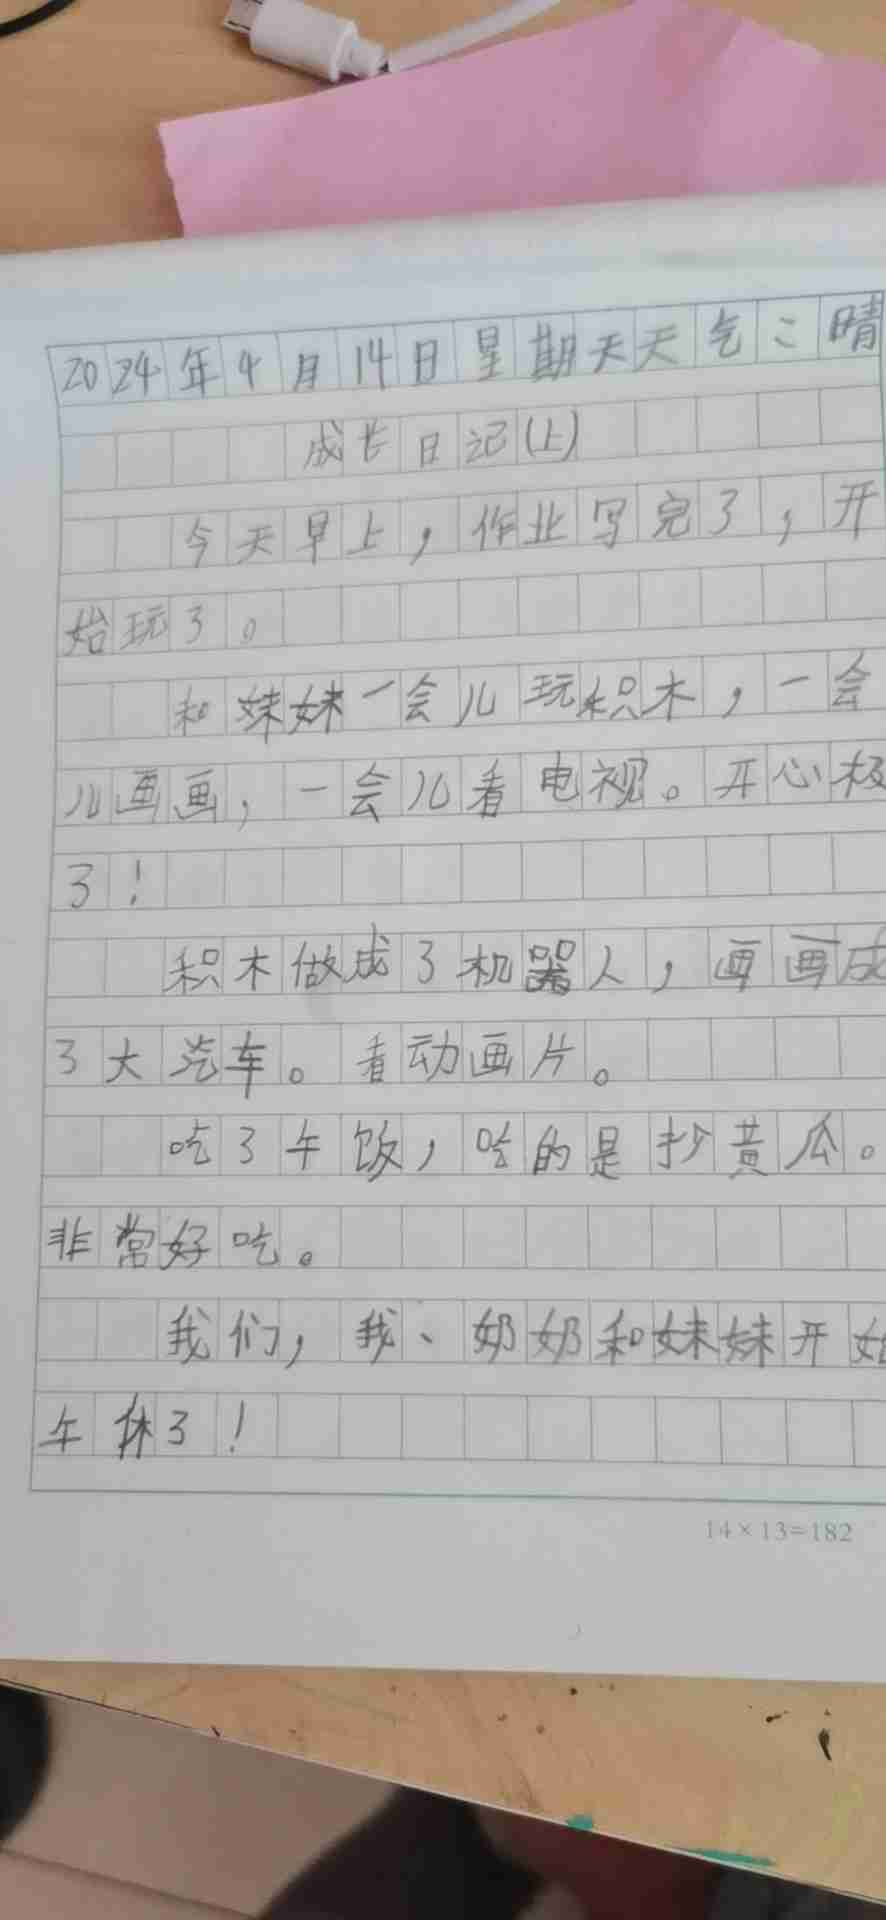 2024年4月14日星期天天气:晴
成长日记(上)
今天早上,作业写完了,开
始玩了。
和妹妹一会儿玩积木,一会
儿画画,一会儿看电视。开心极
了!
积木做成了机器人,画画成
了大汽车。看动画片。
吃了午饭,吃的是抄黄瓜。
非常好吃。
我们,我、奶奶和妹妹开始
午休了!
14×13=182